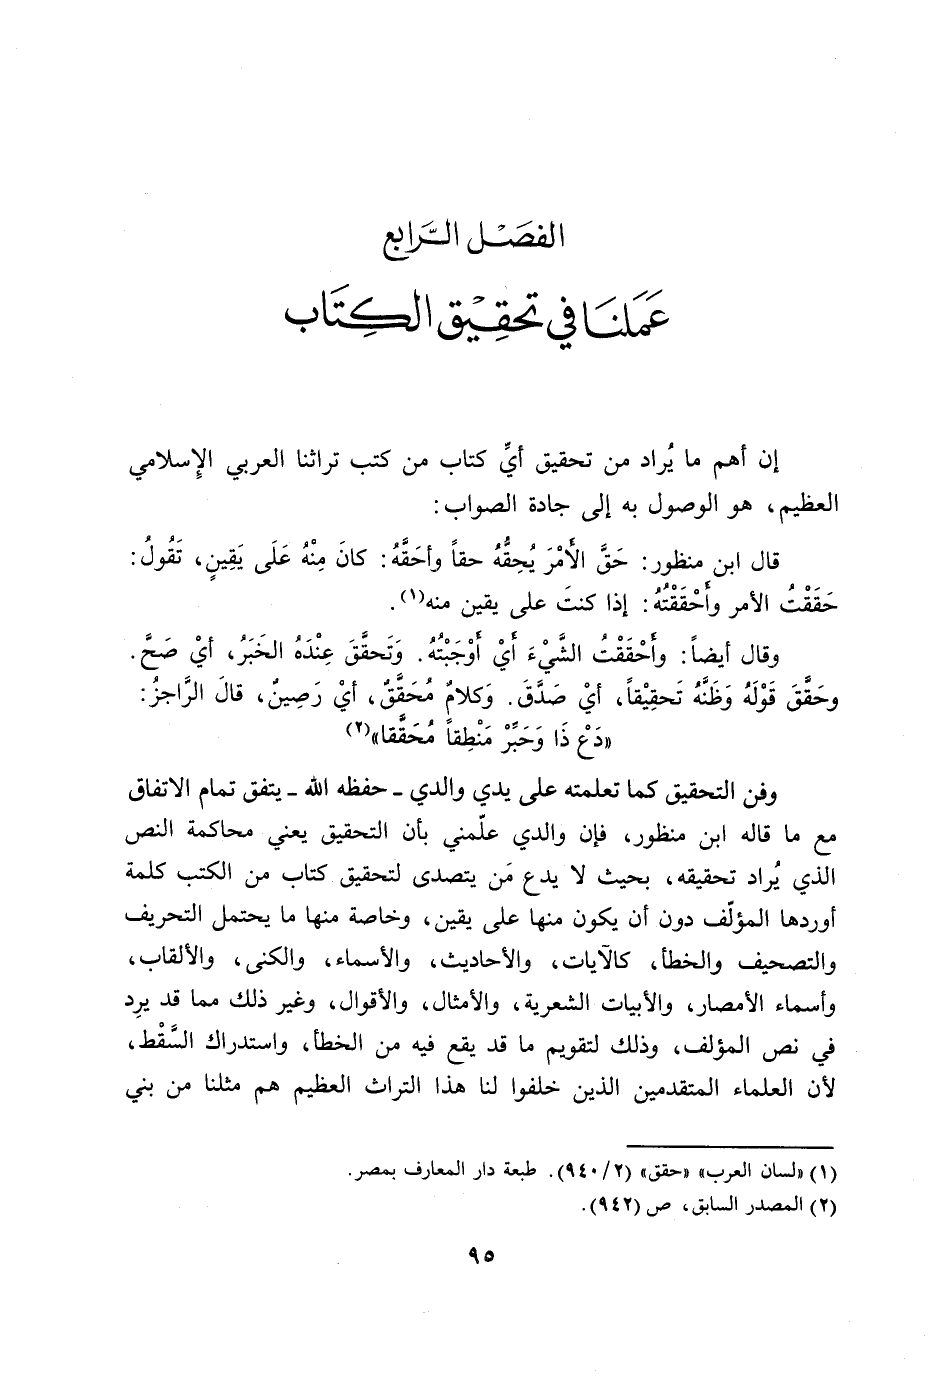 الفصَـْل الـرَّابع
عَمَلنَـا في تحقِـيْق الـكِـتَاب
إن أهم ما يُراد من تحقيق أيِّ كتاب من كتب تراثنا العربي الإِسلامي
العظيم، هو الوصول به إلى جادة الصواب:
قال ابن منظور: حَقَّ الأَمْرَ يُحِقُّهُ حقاً وأحَقَّهُ: كانَ مِنْهُ عَلَى يَقِينٍ، تَقُولُ:
حَقَقْتُ الأمر وأَحْقَقْتُهُ: إذا كنتَ على يقين منه(١).
وقال أيضاً: وأَحْقَقْتُ الشَّيْءَ أَيْ أَوْجَبْتُهُ. وَتَحقَّقَ عِنْدَهُ الخَبَرُ، أيْ صَحَّ.
وحَقَّقَ قَوْلَهُ وَظَنَّهُ تَحقِيْقاً، أيْ صَدَّقَ. وَكلامٌ مُحَقَّقٌ، أيْ رَصِينٌ، قالَ الرَّاجزُ:
«دَعْ ذَا وَحَبِّرْ مَنْطِقاً مُحَقَّقا»(٢)
وفن التحقيق كما تعلمته على يدي والدي ـ حفظه الله ـ يتفق تمام الاتفاق
مع ما قاله ابن منظور، فإن والدي علّمني بأن التحقيق يعني محاكمة النص
الذي يُراد تحقيقه، بحيث لا يدع مَن يتصدى لتحقيق كتاب من الكتب كلمة
أوردها المؤلّف دون أن يكون منها على يقين، وخاصة منها ما يحتمل التحريف
والتصحيف والخطأ، كالآيات، والأحاديث، والأسماء، والكنى، والألقاب،
وأسماء الأمصار، والأبيات الشعرية، والأمثال، والأقوال، وغير ذلك مما قد يرِد
في نص المؤلف، وذلك لتقويم ما قد يقع فيه من الخطأ، واستدراك السَّقْط،
لأن العلماء المتقدمين الذين خلفوا لنا هذا التراث العظيم هم مثلنا من بني
(١) «لسان العرب» «حقق» (٢/ ٩٤٠). طبعة دار المعارف بمصر.
(٢) المصدر السابق، ص (٩٤٢).
٩٥